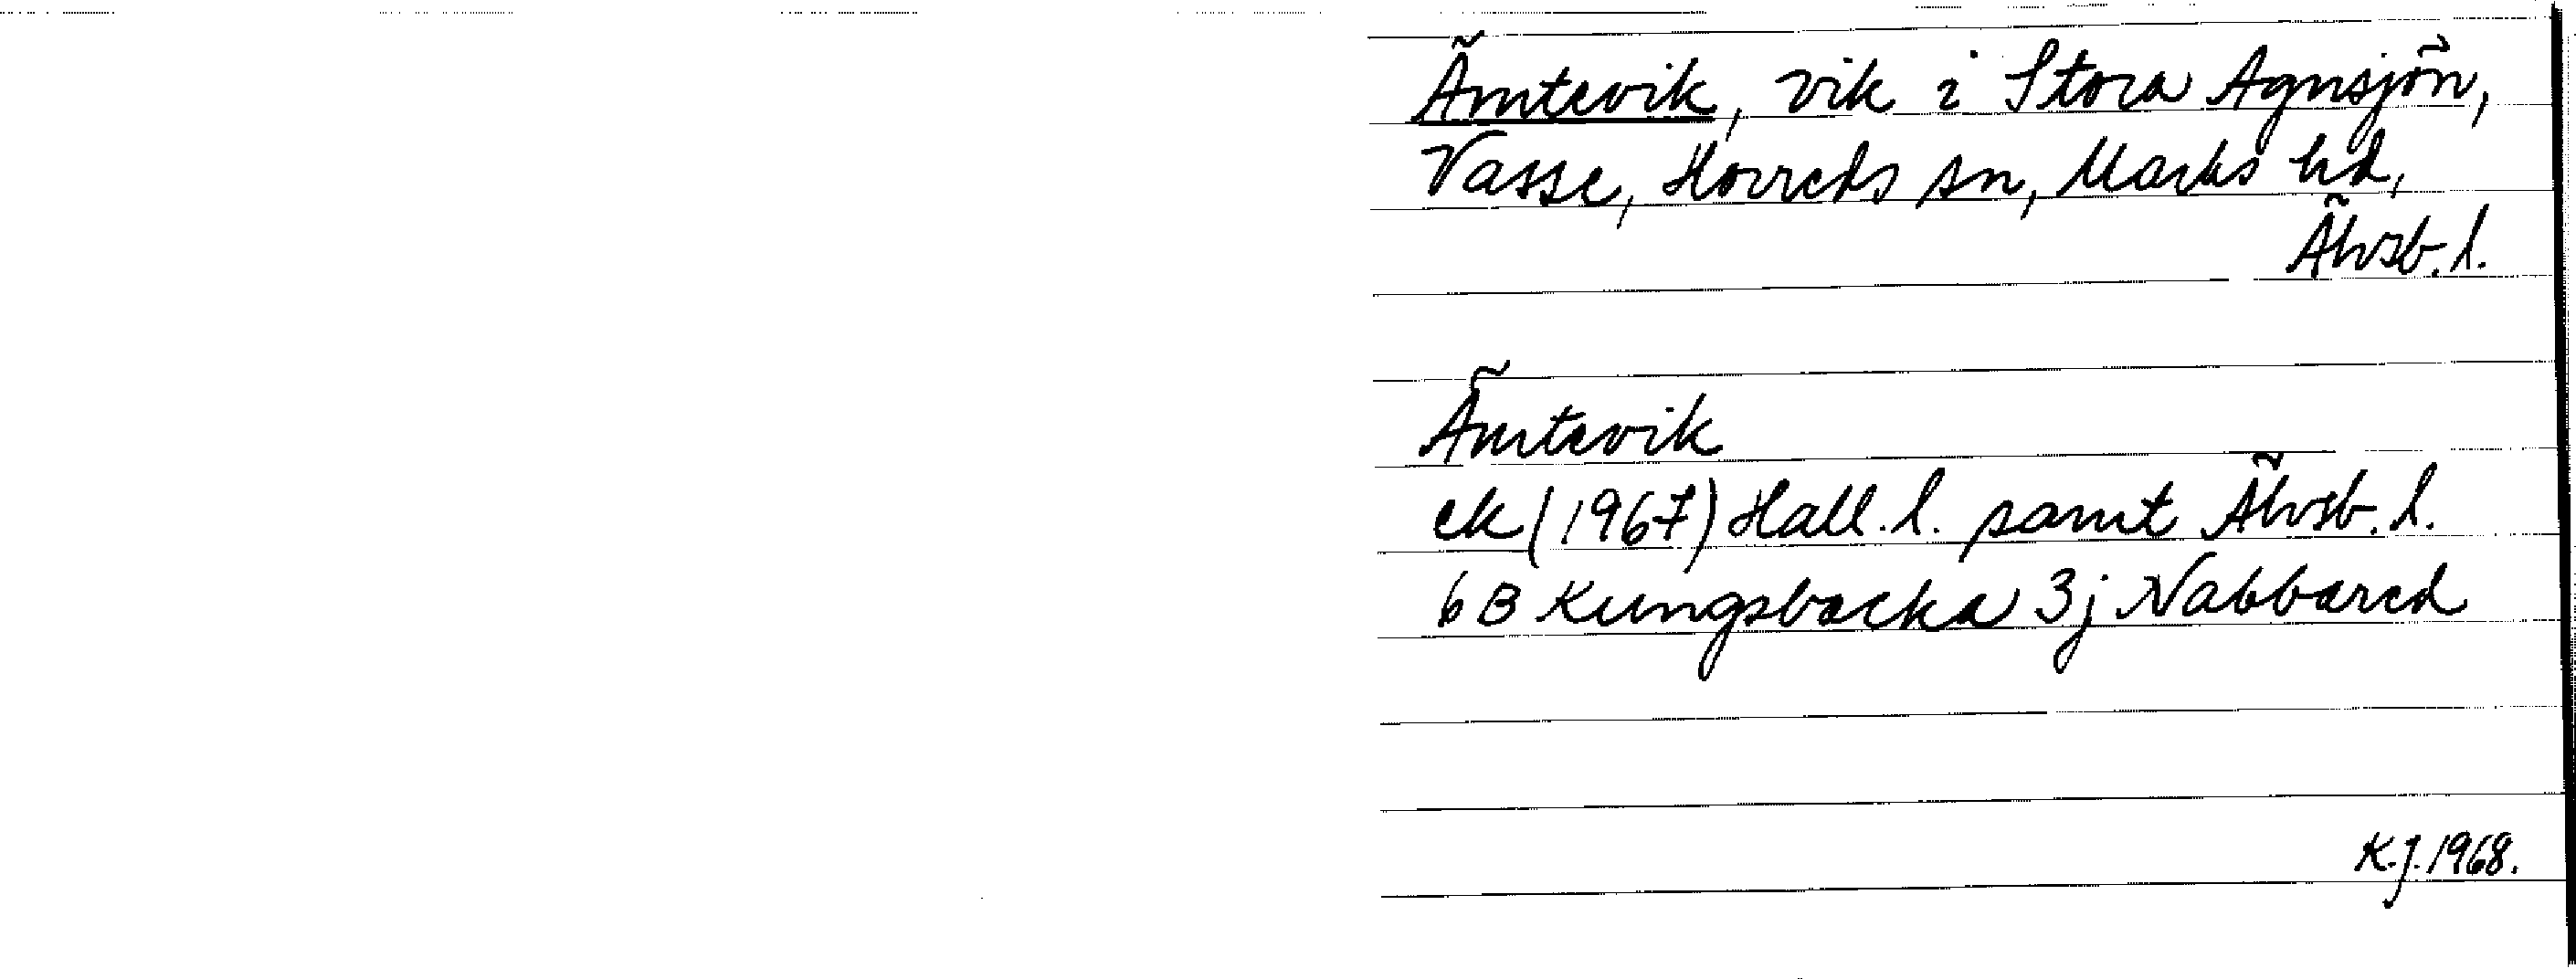 Ämtevik, vik i Stora Agnsjön,
Vasse, Horreds sn, Marks hd,
Älvsb. l.
Ämtevik
ek (1967) Hall. l. samt Älvsb. l.
6 B Kungsbacka 3j Nabbared
K.J. 1968.